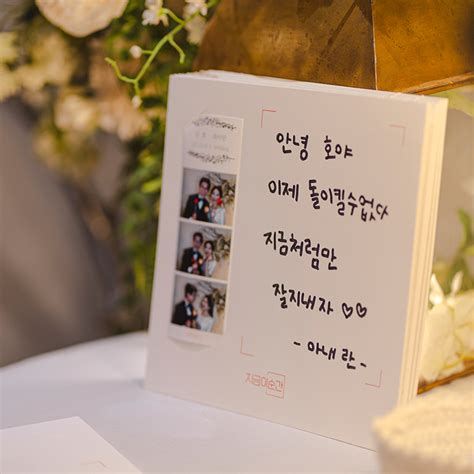 안녕 호야
이제 돌이킬수없다
지금처럼만
잘지내자 ♡♡
- 아내 란 -
지금이순간